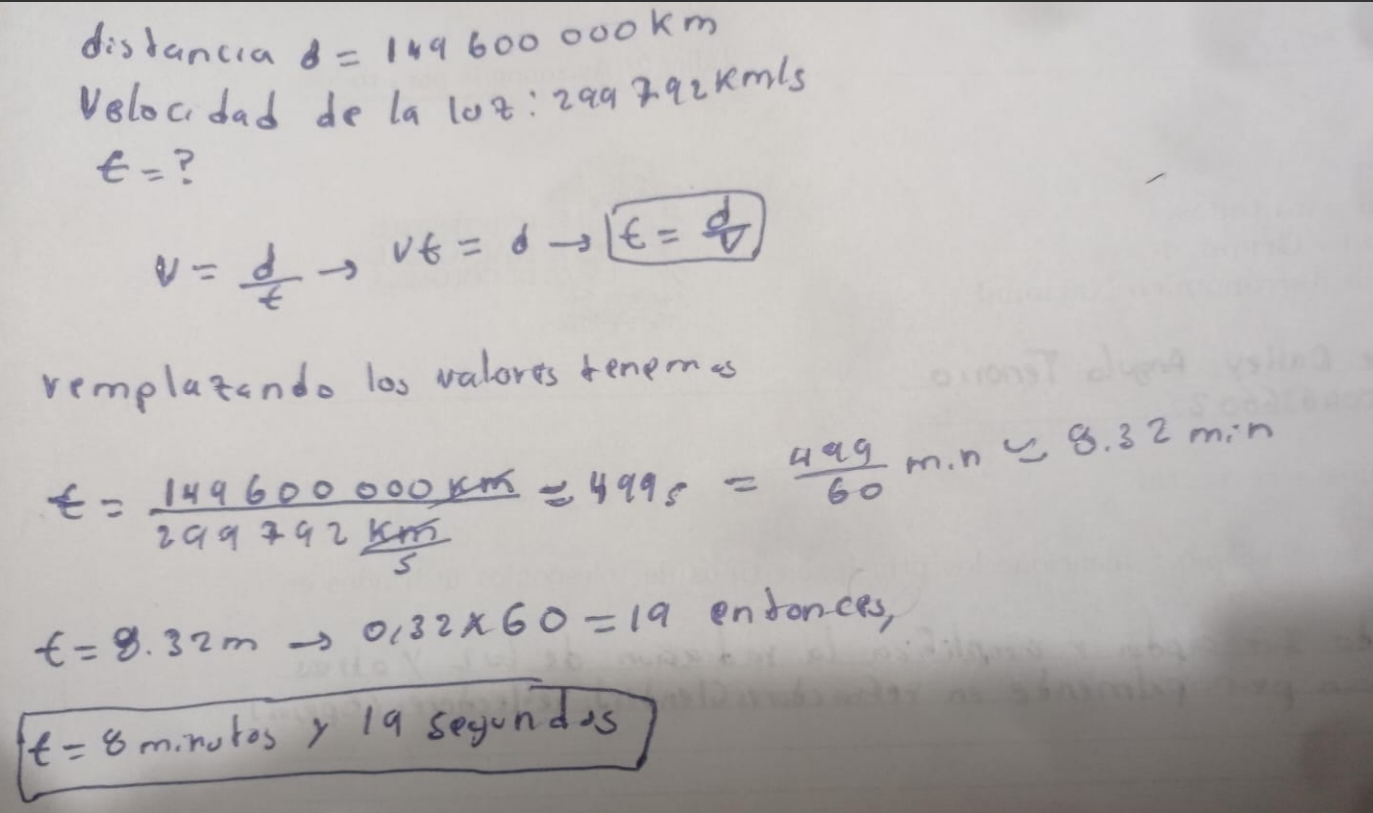 distancia d = 149 600 000 km
Velocidad de la luz: 299 792 km/s
t = ?
v = d/t → vt = d → t = d/v
remplazando los valores tenemos
t = 149 600 000 km / 299 792 km/s ≃ 499 s = 499/60 min ≃ 8.32 min
t = 8.32 m → 0,32 x 60 = 19 entonces,
t = 8 minutos y 19 segundos